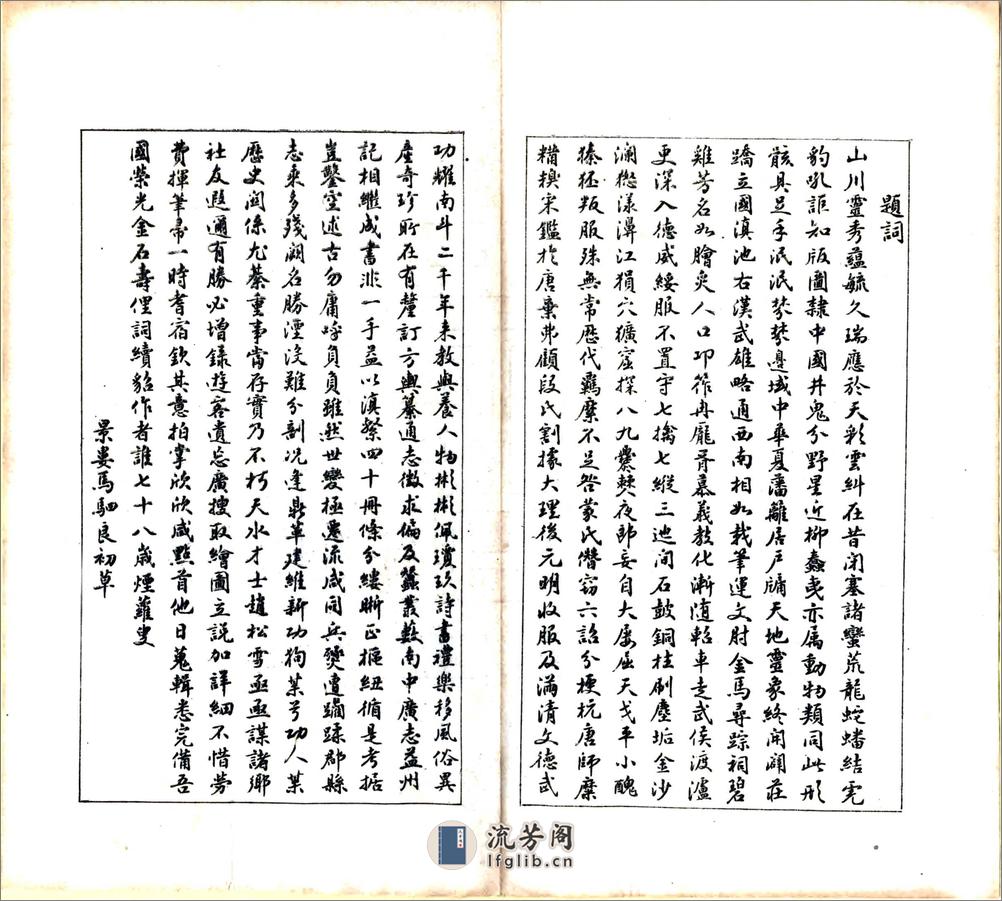 題詞
山川靈秀蘊毓久瑞應於天彩雲糾在昔閉塞諸蠻荒龍蛇蟠結虎
豹吼詎知版圖隸中國井鬼分野星近柳蠡曵亦屬動物類同此形
骸具足手泯泯棼棼邊域中華夏藩籬居戶牖天地靈象終開闢莊
蹻立國滇池右漢武雄略通西南相如載筆運文肘金馬尋踪祠碧
雞芳名如膾炙人口邛筰冉駹胥慕義教化漸隨軺車走武侯渡瀘
更深入德威綏服不置守七擒七縱三迤間石鼓銅柱刷塵垢金沙
瀾滄漾濞江猓穴獷窟探八九爨僰夜郎妄自大屢屈天戈平小醜
獉狉叛服殊無常歷代羈縻不足咎蒙氏僭竊六詔分梗抗唐師糜
糒糗宋鑑於唐棄弗顧段氏割據大理後元明收服及滿清文德武
功耀南斗二千年来教與養人物彬彬佩瓊玖詩書禮樂移風俗異
產奇珍所在有釐訂方輿纂通志徵求偏及蠶叢藪南中廣志益州
記相繼成書非一手益以滇繫四十冊條分縷晰正樞紐循是考据
豈鑿空述古勿庸呼負負雖然世變極遷流咸同兵燹遭蹦蹂郡縣
志乘多殘闕名勝湮没難分剖况逢鼎革建維新功狗某兮功人某
歷史関係尤綦重事當存實乃不朽天水才士趙松雪亟亟謀諸鄉
社友遐邇有勝必增錄遊客遺忘廣搜取繪圖立説加詳細不惜勞
費揮筆帚一時耆宿欽其意拍掌欣欣咸點首他日蒐輯悉完備吾
國榮光金石壽俚詞續貂作者誰七十八歲煙蘿叟
景婁馬駟良初草
流芳阁
lfglib.cn